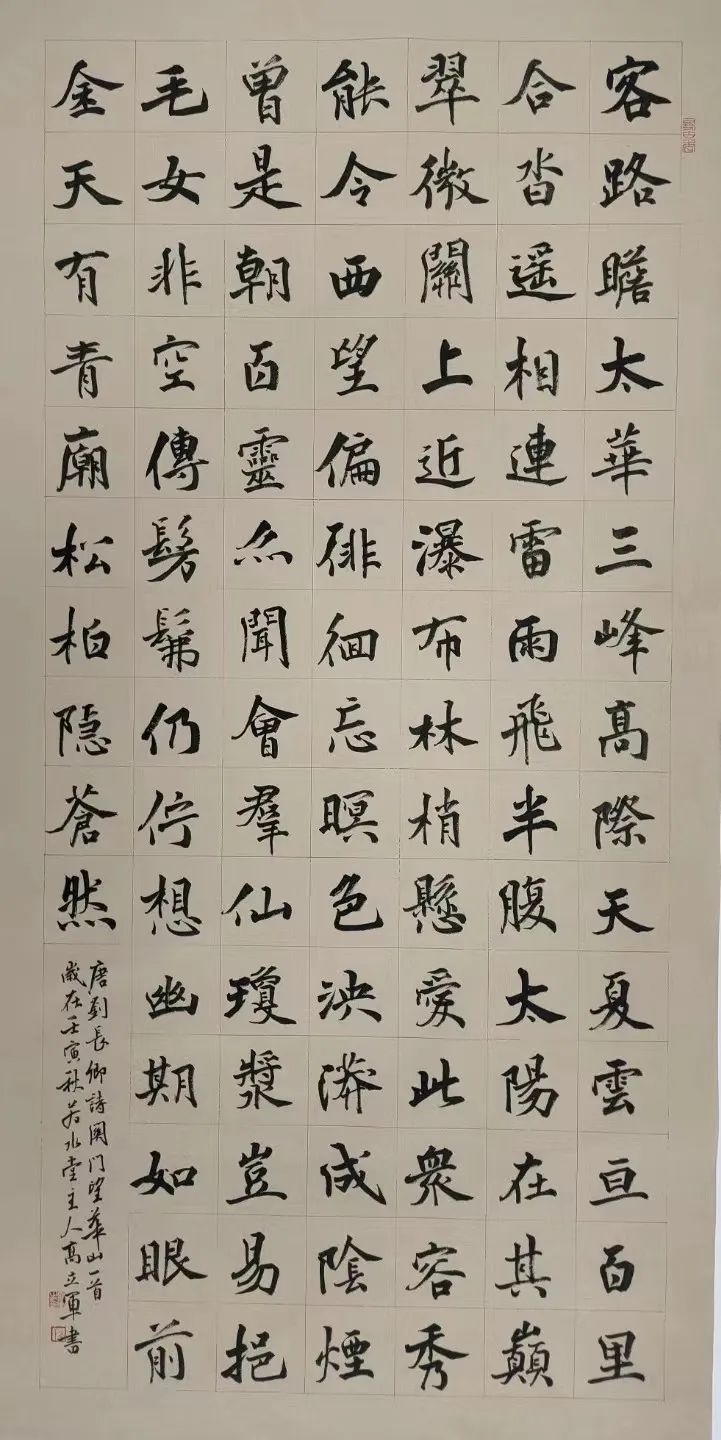 客路瞻太華三峰高際天夏雲亘百里
合沓遥相連雷雨飛半腹太陽在其巔
翠微關上近瀑布林梢懸愛此衆容秀
能令西望偏徘徊忘暝色泱漭成陰煙
曾是朝百靈亦聞會羣仙瓊漿豈易挹
毛女非空傳髣髴仍佇想幽期如眼前
金天有青廟松柏隱蒼然
唐劉長卿詩関门望華山一首
歲在壬寅秋若水堂主人高立軍書